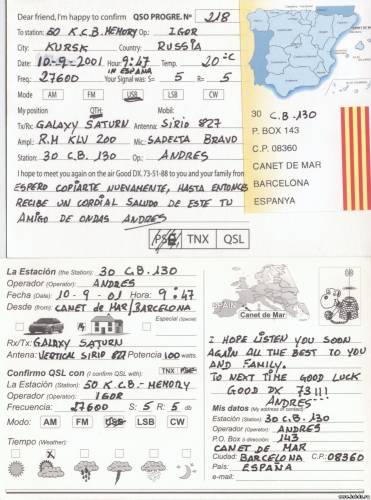 Dear friend, I'm happy to confirm QSO PROGRE. Nº 218
To station: 50 K.C.B. MEMORY Op: IGOR
City: KURSK Country: RUSSIA
Date: 10-9-2001 Hour: 9:47 Temp. 20 ºC
IN ESPAÑA
Freq: 27600 Your Signal was: S= 5 R= 5
Mode: AM FM USB LSB CW
My position QTH: Mobil:
Tx/Rx: GALAXY SATURN Antenna: SIRIO 827
Ampl: R.M KLV 200 Mic: SADELTA BRAVO
Station: 30 C.B. 130 Op: ANDRES
I hope to meet you again on the air Good DX. 73-51-88 to you and your family from
ESPERO COPIARTE NUEVAMENTE, HASTA ENTONCES
RECIBE UN CORDIAL SALUDO DE ESTE TU
AMIGO DE ONDAS ANDRES
PSE TNX QSL
30 C.B. 130
P. BOX 143
C.P. 08360
CANET DE MAR
BARCELONA
ESPANYA
La Estación (the Station): 30 C.B. 130
Operador (Operator): ANDRES
Fecha (Date): 10-9-01 Hora: 9:47
Desde (from): CANET DE MAR/BARCELONA
Especial (Special)
Rx/Tx: GALAXY SATURN
Antena: VERTICAL SIRIO 827 Potencia 100 watts.
Confirmo QSL con (I confirm QSL with) TNX PSE
La Estación (the Station): 50 K.C.B.-MEMORY
Operador (Operator): IGOR
Frecuencia: 27600 S: 5 R: 5 db
Modo: AM FM USB LSB CW
Tiempo (Weather):
SPAIN
Canet de Mar
I HOPE LISTEN YOU SOON
AGAIN ALL THE BEST TO YOU
AND FAMILY.
TO NEXT TIME GOOD LUCK
GOOD DX 73!!!
ANDRES
Mis datos (My address of contact)
Estación (Station): 30 C.B. 130
Operador (Operator): ANDRES
P.O. Box ó dirección: 143
CANET DE MAR
Ciudad: BARCELONA C.P.: 08360
País: ESPAÑA
e-mail: